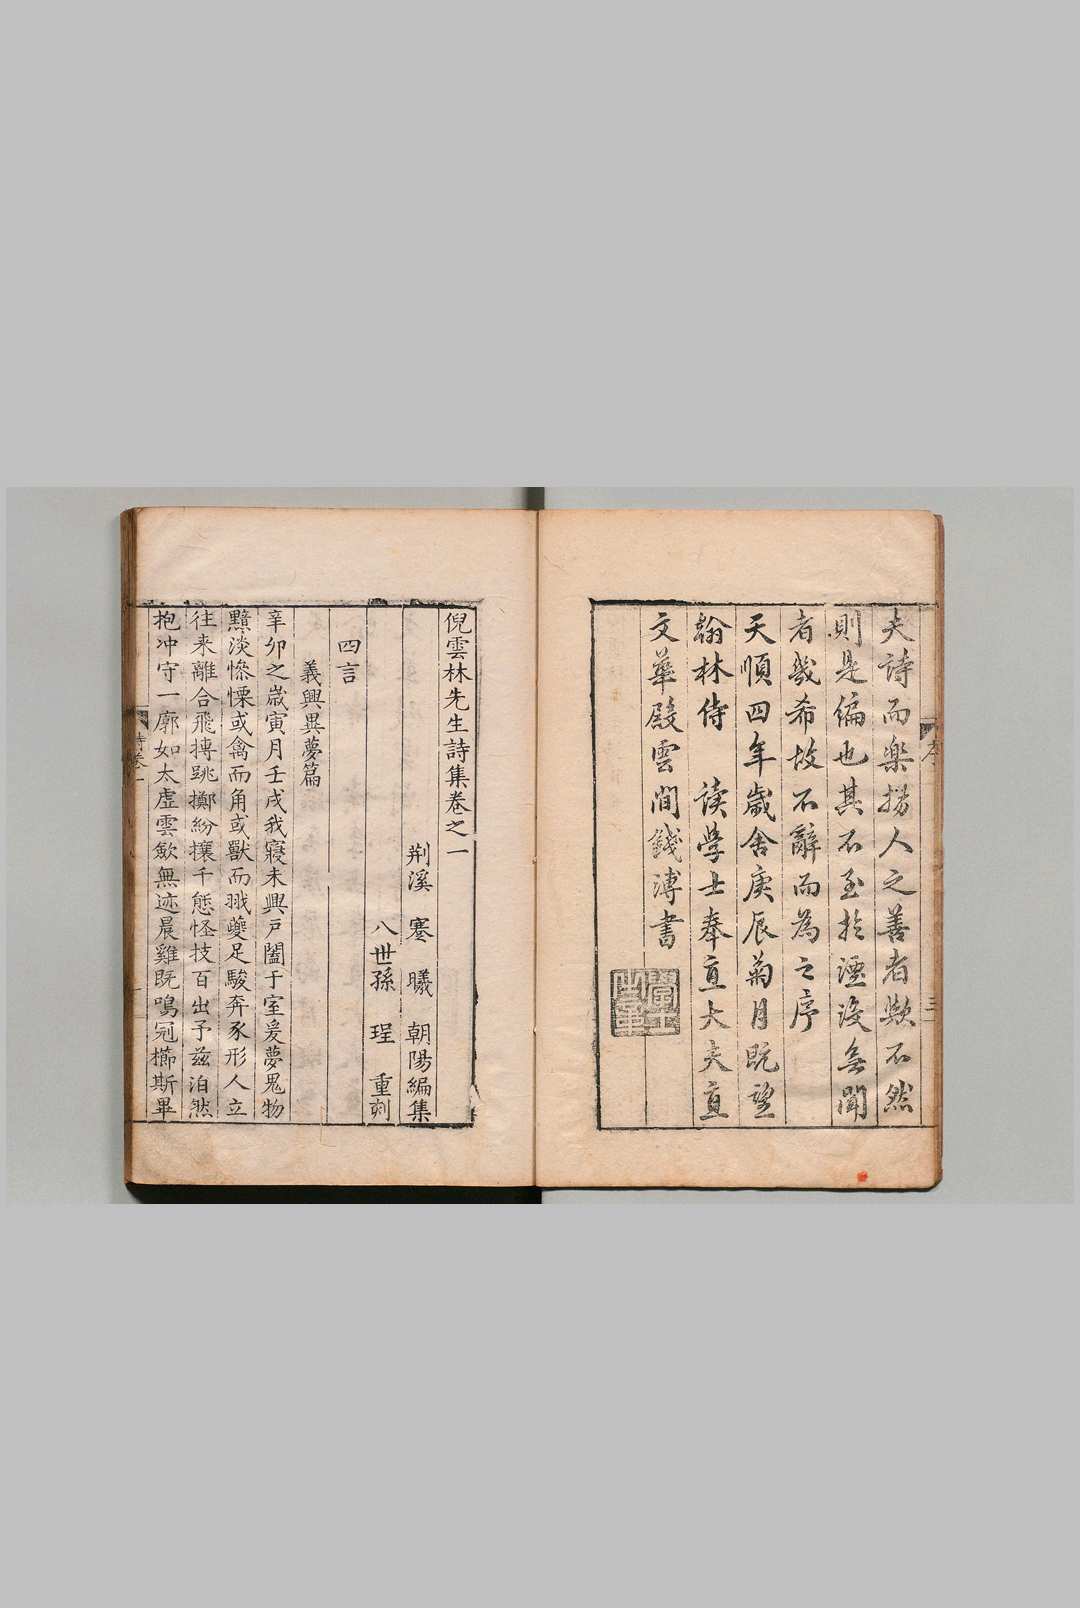 夫詩而樂揚人之善者歟不然
則是編也其不至於湮沒無聞
者幾希故不辭而為之序
天順四年歲舍庚辰菊月既望
翰林侍讀學士奉直大夫直
文華殿雲間錢溥書
倪雲林先生詩集卷之一
荆溪 蹇曦 朝陽編集
八世孫 珵 重刻
四言
義興異夢篇
辛卯之歲寅月壬戌我寢未興戶闔于室爰夢鬼物
黯淡慘慄或禽而角或獸而翄夔足駿奔豕形人立
往来離合飛摶跳擲紛攘千態怪技百出予茲泊然
抱冲守一廓如太虛雲歛無迹晨雞既鳴冠櫛斯畢
詩卷一